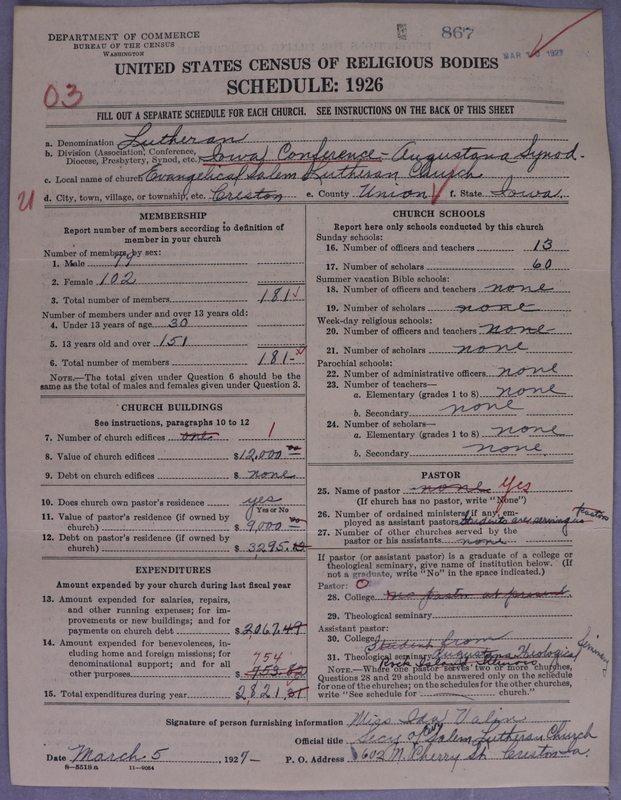 DEPARTMENT OF COMMERCE
BUREAU OF THE CENSUS
WASHINGTON
867
MAR 10 1927
UNITED STATES CENSUS OF RELIGIOUS BODIES
SCHEDULE: 1926
03
FILL OUT A SEPARATE SCHEDULE FOR EACH CHURCH. SEE INSTRUCTIONS ON THE BACK OF THIS SHEET
a. Denomination Lutheran
b. Division (Association, Conference, Diocese, Presbytery, Synod, etc.) Iowa Conference - Augustana Synod.
c. Local name of church Evangelical Salem Lutheran Church
21 d. City, town, village, or township, etc. Creston e. County Union f. State Iowa
MEMBERSHIP
Report number of members according to definition of
member in your church
Number of members by sex:
1. Male 79
2. Female 102
3. Total number of members 181
Number of members under and over 13 years old:
4. Under 13 years of age 30
5. 13 years old and over 151
6. Total number of members 181
NOTE.—The total given under Question 6 should be the
same as the total of males and females given under Question 3.
CHURCH BUILDINGS
See instructions, paragraphs 10 to 12
7. Number of church edifices one 1
8. Value of church edifices $12,000
9. Debt on church edifices $ none
10. Does church own pastor's residence yes
Yes or No
11. Value of pastor's residence (if owned by
church) $ 9,000
12. Debt on pastor's residence (if owned by
church) $ 3295.
EXPENDITURES
Amount expended by your church during last fiscal year
13. Amount expended for salaries, repairs,
and other running expenses; for im-
provements or new buildings; and for
payments on church debt $2067.49
14. Amount expended for benevolences, in-
cluding home and foreign missions; for
denominational support; and for all
other purposes 754
$ 753.82
15. Total expenditures during year $2,821.31
CHURCH SCHOOLS
Report here only schools conducted by this church
Sunday schools:
16. Number of officers and teachers 13
17. Number of scholars 60
Summer vacation Bible schools:
18. Number of officers and teachers none
19. Number of scholars none
Week-day religious schools:
20. Number of officers and teachers none
21. Number of scholars none
Parochial schools:
22. Number of administrative officers none
23. Number of teachers—
a. Elementary (grades 1 to 8) none
b. Secondary none
24. Number of scholars—
a. Elementary (grades 1 to 8) none
b. Secondary none
PASTOR
25. Name of pastor none Yes
(If church has no pastor, write "None")
26. Number of ordained ministers, if any, em-
ployed as assistant pastors Students are serving as Pastors
27. Number of other churches served by the
pastor or his assistants none
If pastor (or assistant pastor) is a graduate of a college or
theological seminary, give name of institution below. (If
not a graduate, write "No" in the space indicated.)
Pastor: 0
28. College no pastor at present
29. Theological seminary
Assistant pastor:
30. College Student from
31. Theological seminary Augustana Theological Seminary
Rock Island Illinois
NOTE.—Where one pastor serves two or more churches,
Questions 28 and 29 should be answered only on the schedule
for one of the churches; on the schedules for the other churches,
write "See schedule for church."
Signature of person furnishing information Miss Inez Valin
Official title Secy of Salem Lutheran Church
Date March 5, 1927- P. O. Address 602 N. Cherry St. Creston Ia.
8—5518a 11—9264